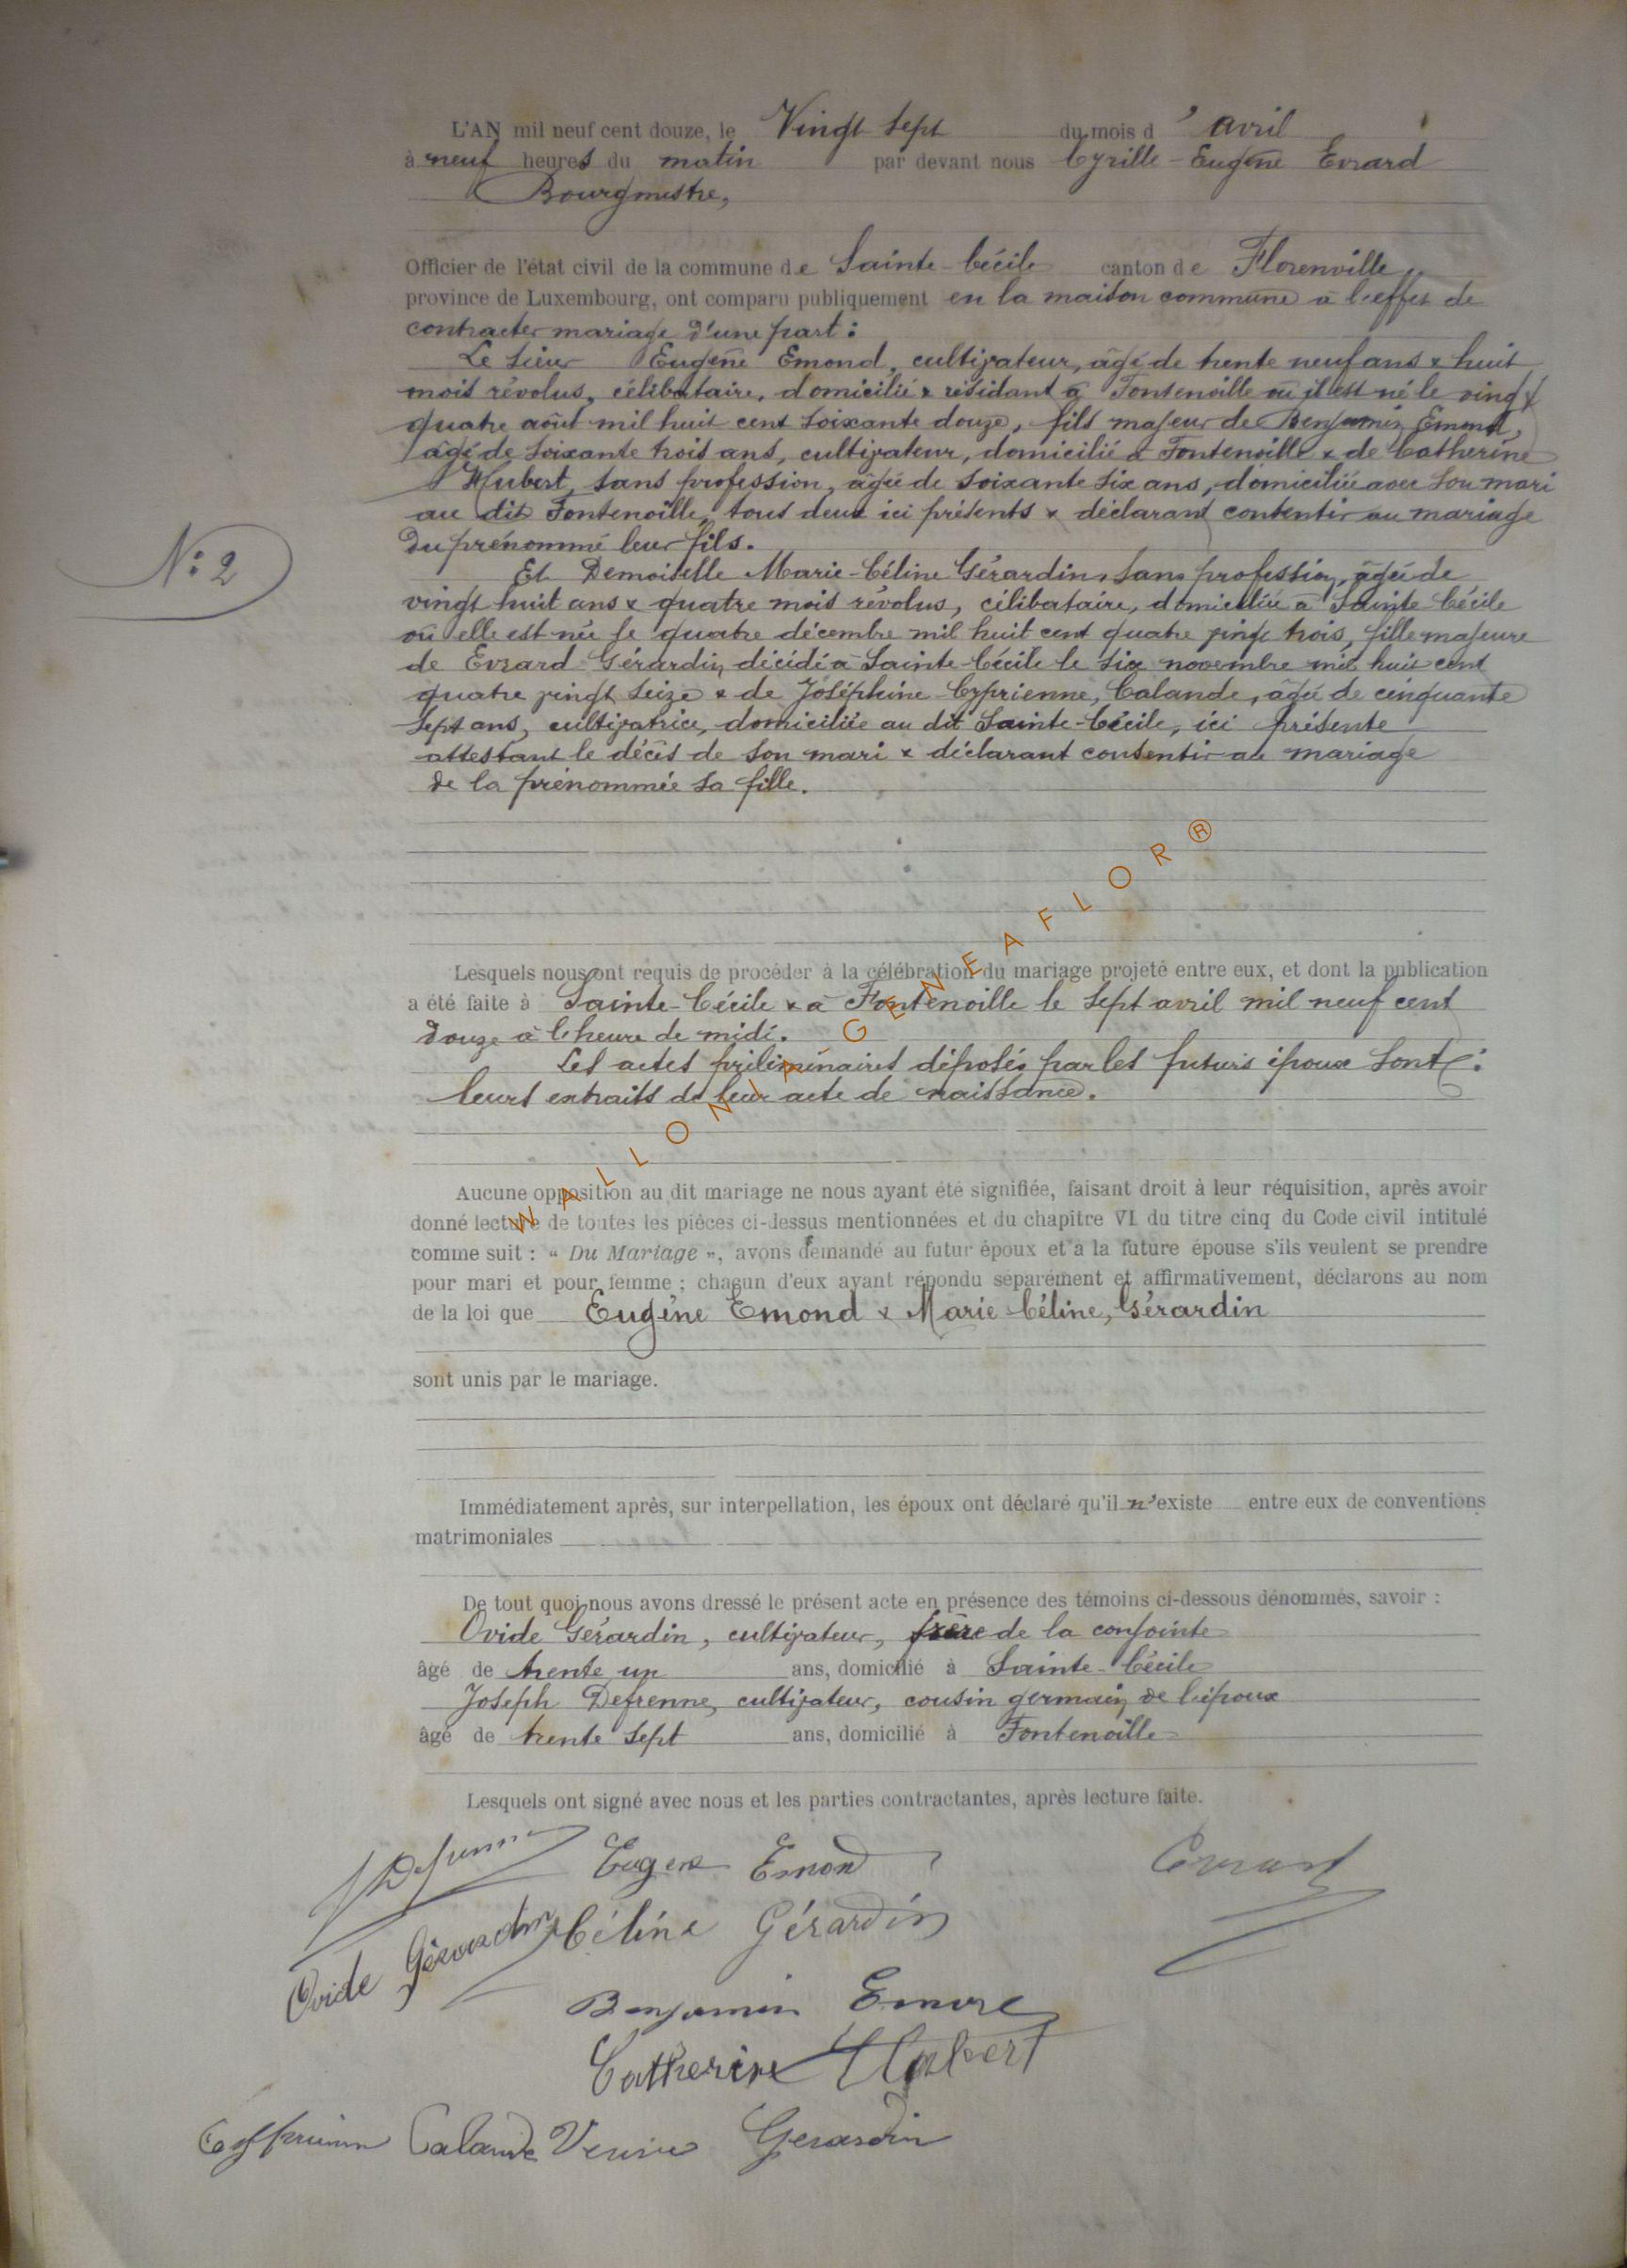 L'AN mil neuf cent douze, le Vingt sept du mois d'avril
à neuf heures du matin par devant nous Cyrille-Eugène Evrard
Bourgmestre,
Officier de l'état civil de la commune de Sainte-Cécile canton de Florenville,
province de Luxembourg, ont comparu publiquement en la maison commune à l'effet de
contracter mariage d'une part :
Le sieur Eugène Emond, cultivateur, âgé de trente neuf ans & huit
mois révolus, célibataire, domicilié & résidant à Fontenoille où il est né le vingt
quatre août mil huit cent soixante douze, fils majeur de Benjamin Emond,
âgé de soixante trois ans, cultivateur, domicilié à Fontenoille & de Catherine
Hubert, sans profession, âgée de soixante six ans, domiciliée avec son mari
au dit Fontenoille, tous deux ici présents & déclarant consentir au mariage
du prénommé leur fils.
N: 2
Et Demoiselle Marie-Céline Gérardin, sans profession, âgée de
vingt huit ans & quatre mois révolus, célibataire, domiciliée à Sainte-Cécile
où elle est née le quatre décembre mil huit cent quatre vingt trois, fille majeure
de Evrard Gérardin, décédé à Sainte-Cécile le six novembre mil huit cent
quatre vingt seize & de Joséphine-Cyprienne, Calande, âgée de cinquante
sept ans, cultivatrice, domiciliée au dit Sainte-Cécile, ici présente
attestant le décès de son mari & déclarant consentir au mariage
de la prénommée sa fille.
Lesquels nous ont requis de procéder à la célébration du mariage projeté entre eux, et dont la publication
a été faite à Sainte-Cécile & à Fontenoille le sept avril mil neuf cent
douze à l'heure de midi.
Les actes préliminaires déposés par les futurs époux sont :
leurs extraits de leur acte de naissance.
Aucune opposition au dit mariage ne nous ayant été signifiée, faisant droit à leur réquisition, après avoir
donné lecture de toutes les pièces ci-dessus mentionnées et du chapitre VI du titre cinq du Code civil intitulé
comme suit : « Du Mariage », avons demandé au futur époux et à la future épouse s'ils veulent se prendre
pour mari et pour femme ; chacun d'eux ayant répondu séparément et affirmativement, déclarons au nom
de la loi que Eugène Emond & Marie-Céline, Gérardin
sont unis par le mariage.
Immédiatement après, sur interpellation, les époux ont déclaré qu'il n'existe entre eux de conventions
matrimoniales
De tout quoi nous avons dressé le présent acte en présence des témoins ci-dessous dénommés, savoir :
Ovide Gérardin, cultivateur, frère de la conjointe
âgé de trente un ans, domicilié à Sainte-Cécile
Joseph Defrenne, cultivateur, cousin germain de l'époux
âgé de trente sept ans, domicilié à Fontenoille
Lesquels ont signé avec nous et les parties contractantes, après lecture faite.
Eugène Emond
Evrard
Ovide Gérardin
Céline Gérardin
Benjamin
Catherine Hubert
Calande Veuve Gerardin
WALLONIA-GENEAFLOR®